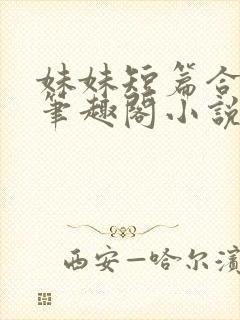 妹妹短篇合
筆趣閣小說
西安—哈尔濱